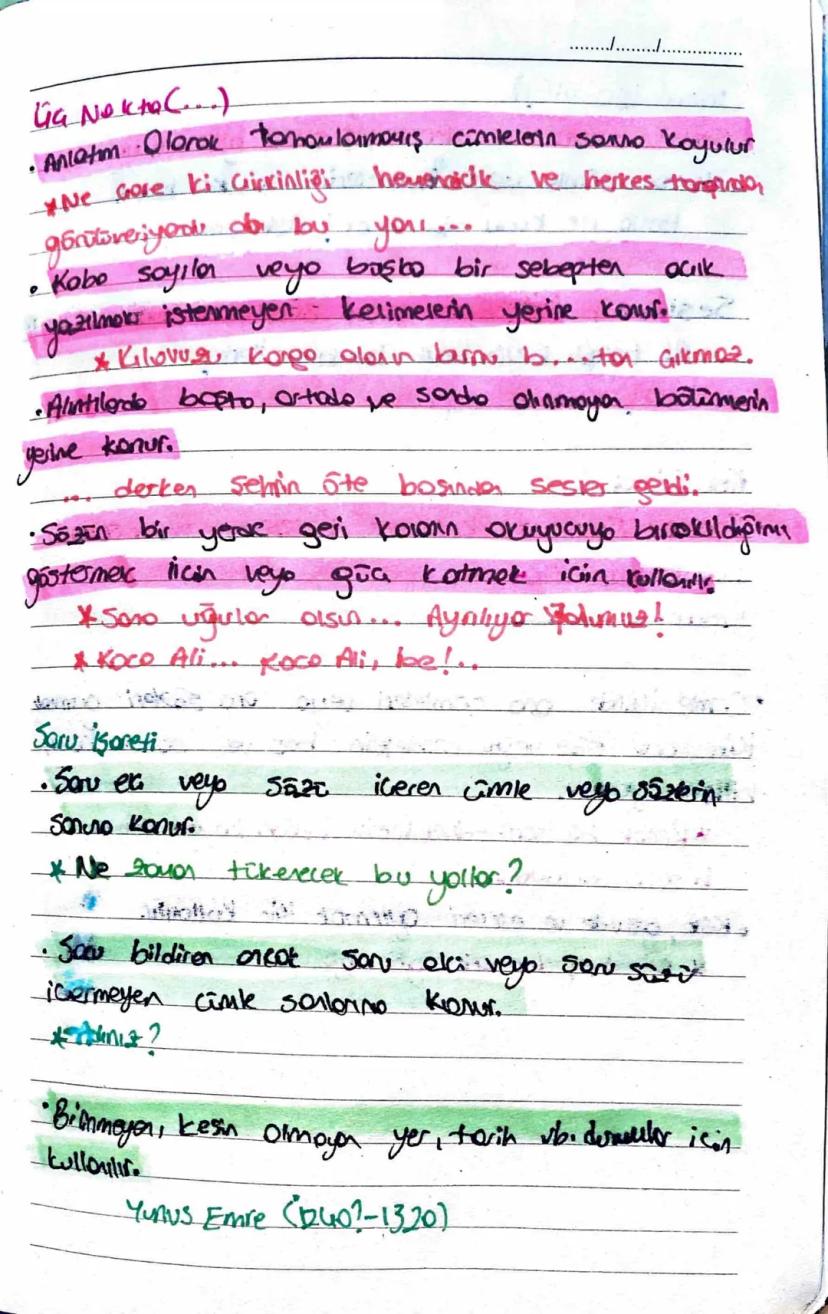 ......../......../................
Üç Nokta (...)
. Anlatım Olarak tamamlanmamış cümlelerin sonuna koyulur
* Ne çare ki çirkinliği hemencecik ve herkes tarafından
görülüveriyordu da bu yanı...
. Kaba sayılan veya başka bir sebepten açık
yazılmak istenmeyen kelimelerin yerine konur.
* Kılavuzu karga olanın burnu b...tan çıkmaz.
. Alıntılarda başta, ortada ve sonda alınmayan bölümlerin
yerine konur.
... derken şehrin öte başından sesler geldi.
. Sözün bir yerde geri kalanın okuyucuya bırakıldığını
göstermek için veya güç katmak için kullanılır.
* Sana uğurlar olsun... Ayrılıyor Yolumuz!
* Koca Ali... Koca Ali, be!..
Soru işareti
. Soru eki veya sözü içeren cümle veya sözlerin
sonuna konur.
* Ne zaman tükenecek bu yollar?
. Soru bildiren ancak soru eki veya soru sözü
içermeyen cümle sonlarına konur.
* Adınız?
. Bilinmeyen, kesin olmayan yer, tarih vb. durumlar için
kullanılır.
Yunus Emre (1240?-1320)